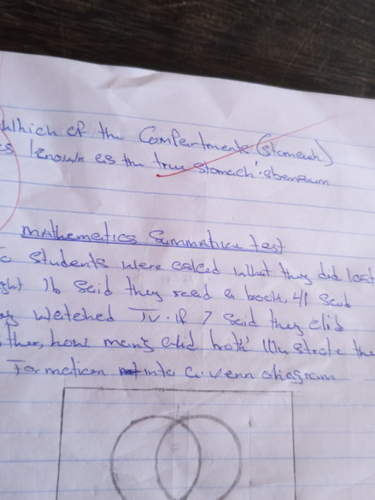 Which of the Compartments (stomach)
es known as the true stomach? abomasum
mathematics Summative test
students were asked what they did last
ght 16 said they read a book, 41 said
watched TV. if 7 said they did
ther, how many did both? Illustrate the
Formation into a venn diagram